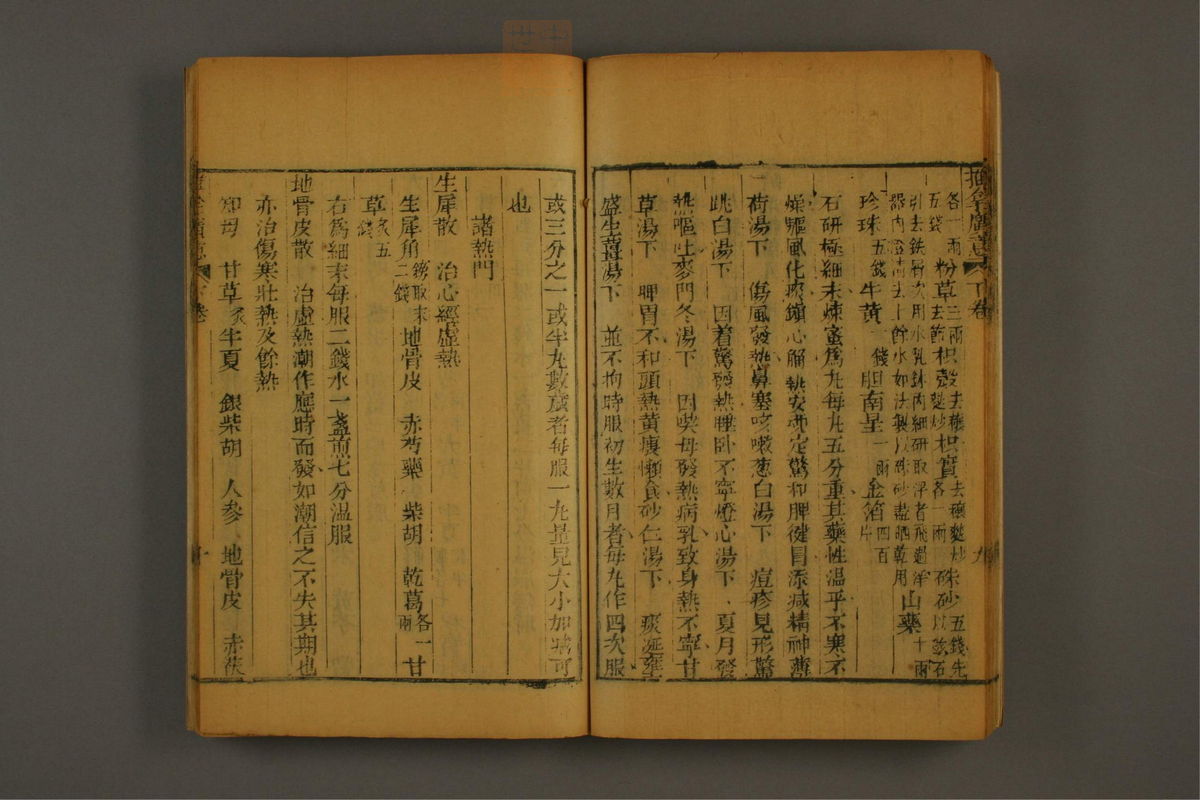 各一兩粉草三兩去節枳殼去穰麩炒枳實去穰麩炒各一兩硃砂五錢先以磁石
引去鉄屑次用水乳鉢內細研取浮者飛過淨器內澄清去上餘水如法製以硃砂盡晒乾用山藥十兩
珍珠五錢牛黃一錢胆南星一兩金箔四百片
右研極細末煉蜜爲丸每丸五分重其藥性溫乎不寒不
燥驅風化痰鎮心解熱安神定驚和脾健胃添減精神薄
荷湯下　傷風發熱鼻塞咳嗽葱白湯下　痘疹見形驚
跳白湯下　因着驚發熱睡卧不寧燈心湯下　夏月發
熱嘔吐麥門冬湯下　因喫母發熱病乳致身熱不寧甘
草湯下　脾胃不和頭熱黃瘦懶食砂仁湯下　痰涎壅
盛生薑湯下　並不拘時服初生數月者每丸作四次服
或三分之一或半丸數歲者每服一丸量見大小加減可
也
諸熱門
生犀散　治心經虛熱
生犀角鎊取末二錢　地骨皮　赤芍藥　柴胡　乾葛各一兩　甘
草炙五錢
右爲細末每服二錢水一盞煎七分温服
地骨皮散　治虛熱潮作應時而發如潮信之不失其期也
亦治傷寒壯熱及餘熱
知母　甘草炙　半夏　銀柴胡　人參　地骨皮　赤茯
下卷